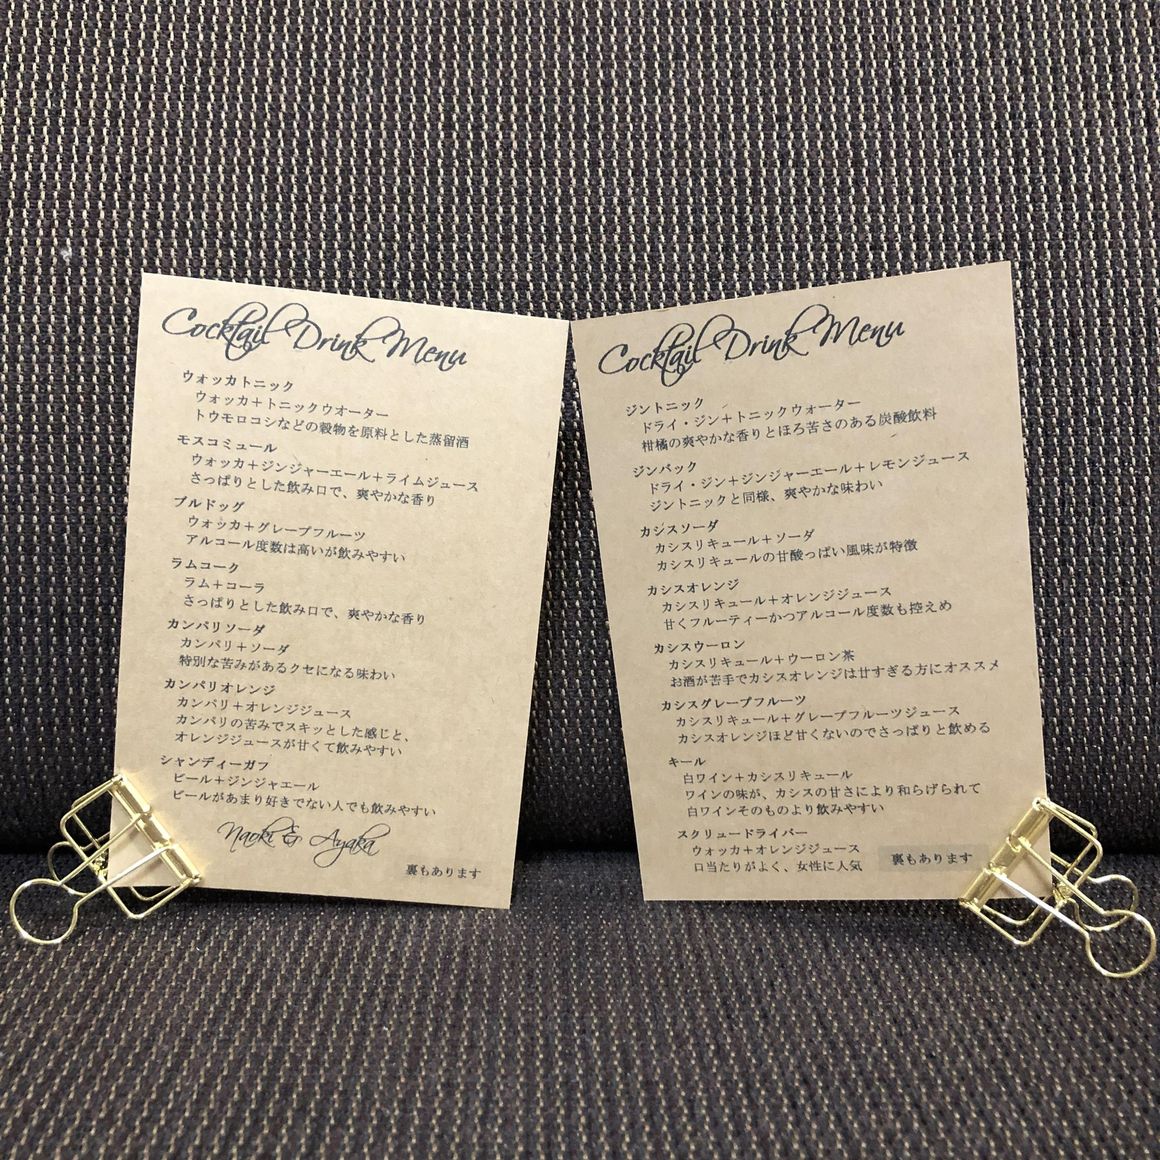 Cocktail Drink Menu
ウォッカトニック
ウォッカ＋トニックウオーター
トウモロコシなどの穀物を原料とした蒸留酒
モスコミュール
ウォッカ＋ジンジャーエール＋ライムジュース
さっぱりとした飲み口で、爽やかな香り
ブルドッグ
ウォッカ＋グレープフルーツ
アルコール度数は高いが飲みやすい
ラムコーク
ラム＋コーラ
さっぱりとした飲み口で、爽やかな香り
カンパリソーダ
カンパリ＋ソーダ
特別な苦みがあるクセになる味わい
カンパリオレンジ
カンパリ＋オレンジジュース
カンパリの苦みでスキッとした感じと、
オレンジジュースが甘くて飲みやすい
シャンディーガフ
ビール＋ジンジャエール
ビールがあまり好きでない人でも飲みやすい
Naoki & Ayaka
裏もあります
Cocktail Drink Menu
ジントニック
ドライ・ジン＋トニックウォーター
柑橘の爽やかな香りとほろ苦さのある炭酸飲料
ジンバック
ドライ・ジン＋ジンジャーエール＋レモンジュース
ジントニックと同様、爽やかな味わい
カシスソーダ
カシスリキュール＋ソーダ
カシスリキュールの甘酸っぱい風味が特徴
カシスオレンジ
カシスリキュール＋オレンジジュース
甘くフルーティーかつアルコール度数も控えめ
カシスウーロン
カシスリキュール＋ウーロン茶
お酒が苦手でカシスオレンジは甘すぎる方にオススメ
カシスグレープフルーツ
カシスリキュール＋グレープフルーツジュース
カシスオレンジほど甘くないのでさっぱりと飲める
キール
白ワイン＋カシスリキュール
ワインの味が、カシスの甘さにより和らげられて
白ワインそのものより飲みやすい
スクリュードライバー
ウォッカ＋オレンジジュース
口当たりがよく、女性に人気
裏もあります